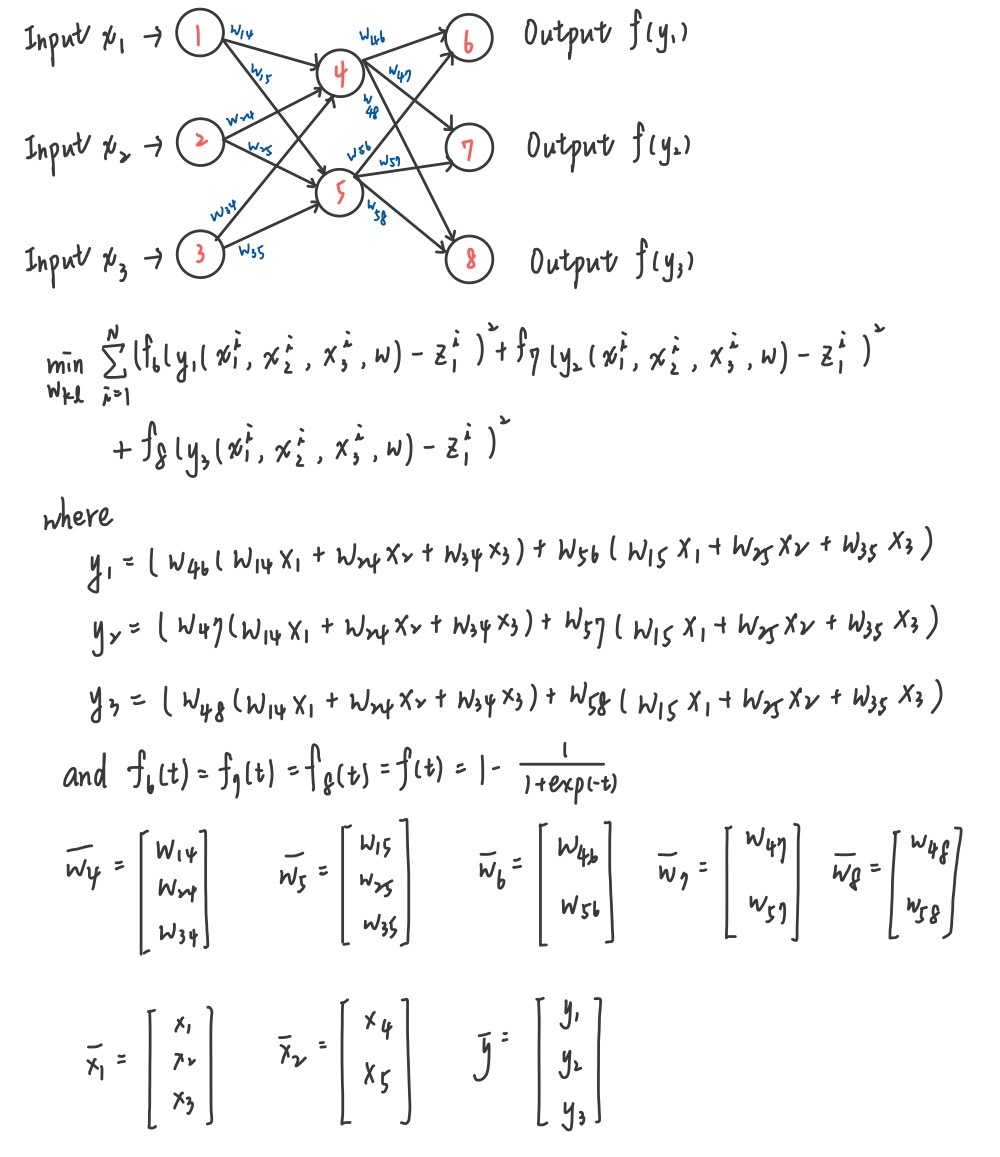 Input x₁ → 1 w₁₄ w₁₅ 4 w₄₆ w₄₇ w₄₈ 6 Output f(y₁)
Input x₂ → 2 w₂₄ w₂₅ 5 w₅₆ w₅₇ w₅₈ 7 Output f(y₂)
Input x₃ → 3 w₃₄ w₃₅ 8 Output f(y₃)
min_{w_{kl}} ∑_{i=1}^{N} (f₆(y₁(x₁ⁱ, x₂ⁱ, x₃ⁱ, w) - z₁ⁱ)² + f₇(y₂(x₁ⁱ, x₂ⁱ, x₃ⁱ, w) - z₁ⁱ)²
+ f₈(y₃(x₁ⁱ, x₂ⁱ, x₃ⁱ, w) - z₁ⁱ)²
where
y₁ = (w₄₆(w₁₄x₁ + w₂₄x₂ + w₃₄x₃) + w₅₆(w₁₅x₁ + w₂₅x₂ + w₃₅x₃)
y₂ = (w₄₇(w₁₄x₁ + w₂₄x₂ + w₃₄x₃) + w₅₇(w₁₅x₁ + w₂₅x₂ + w₃₅x₃)
y₃ = (w₄₈(w₁₄x₁ + w₂₄x₂ + w₃₄x₃) + w₅₈(w₁₅x₁ + w₂₅x₂ + w₃₅x₃)
and f₆(t) = f₇(t) = f₈(t) = f(t) = 1 - 1/(1+exp(-t))
w̄₄ = [w₁₄ w₂₄ w₃₄] w̄₅ = [w₁₅ w₂₅ w₃₅] w̄₆ = [w₄₆ w₅₆] w̄₇ = [w₄₇ w₅₇] w̄₈ = [w₄₈ w₅₈]
x̄₁ = [x₁ x₂ x₃] x̄₂ = [x₄ x₅] ȳ = [y₁ y₂ y₃]